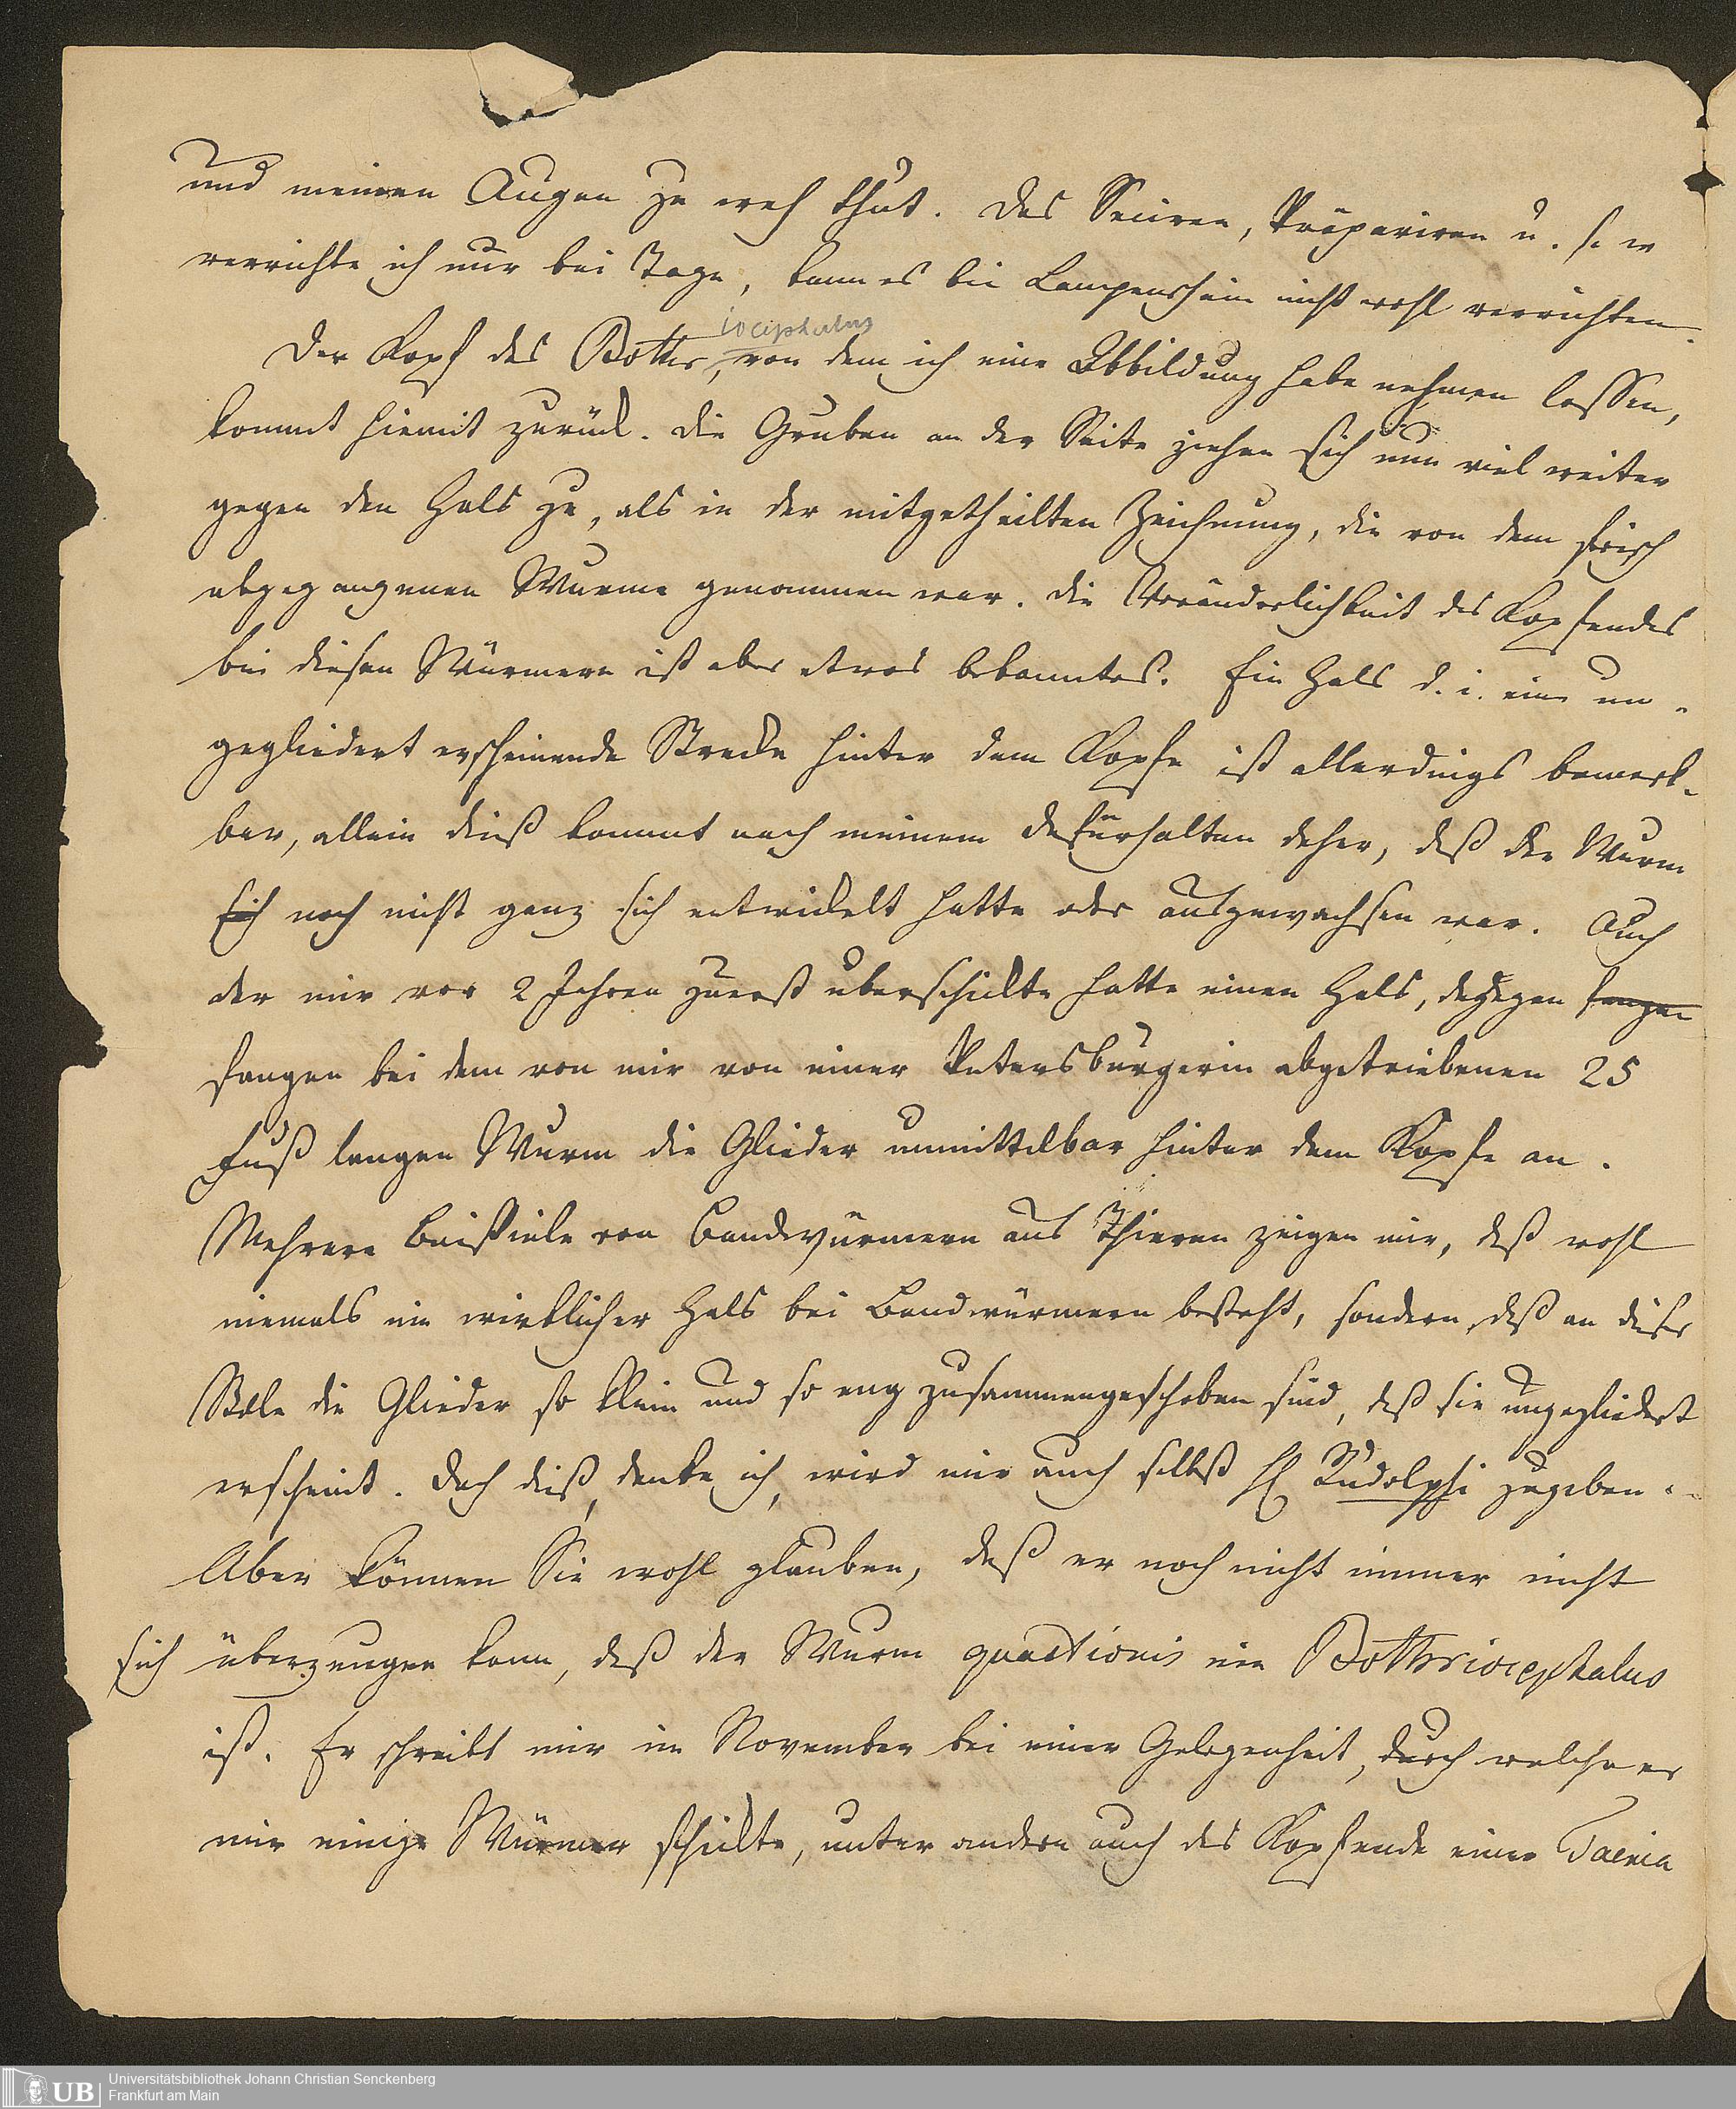 und meinen Augen zu weh thut. Das Seciren, Präpariren u. s. w
verrichte ich nur bei Tage, kann es bei Lampenschein nicht wohl verrichten.
iocephalus
Der Kopf des Bothr, von dem ich eine Abbildung habe nehmen lassen,
kommt hiemit zurück. Die Gruben an der Seite ziehen sich nun viel weiter
gegen den Hals zu, als in der mitgetheilten Zeichnung, die von dem frisch
abgegangenen Wurme genommen war. Die Veränderlichkeit des Kopfendes
bei diesen Würmern ist aber etwas bekanntes. Ein Hals d. i. eine un-
gegliedert erscheinende Strecke hinter dem Kopfe ist allerdings bemerk-
bar, allein dieß kommt nach meinem Dafürhalten daher, daß der Wurm
sich noch nicht ganz sich entwickelt hatte oder ausgewachsen war. Auch
der mir vor 2 Jahren zuerst überschickte hatte einen Hals, dagegen fangen
fangen bei dem von mir von einer Petersburgerin abgetriebenen 25
Fuß langen Wurm die Glieder unmittelbar hinter dem Kopfe an.
Mehrere Beispiele von Bandwürmern aus Thieren zeigen mir, daß wohl
niemals ein wirklicher Hals bei Bandwürmern besteht, sondern, daß an dieser
Stelle die Glieder so klein und so eng zusammengeschoben sind, daß sie ungegliedert
erscheint. Doch dieß, denke ich, wird mir auch selbst H Rudolphi zugeben.
Aber können Sie wohl glauben, daß er noch nicht immer nicht
sich überzeugen kann, daß der Wurm quaestionis ein Bothriocephalus
ist. Er schreibt mir im November bei einer Gelegenheit, durch welche er
mir einige Würmer schickte, unter andern auch das Kopfende einer Taenia
Universitätsbibliothek Johann Christian Senckenberg
Frankfurt am Main
UB